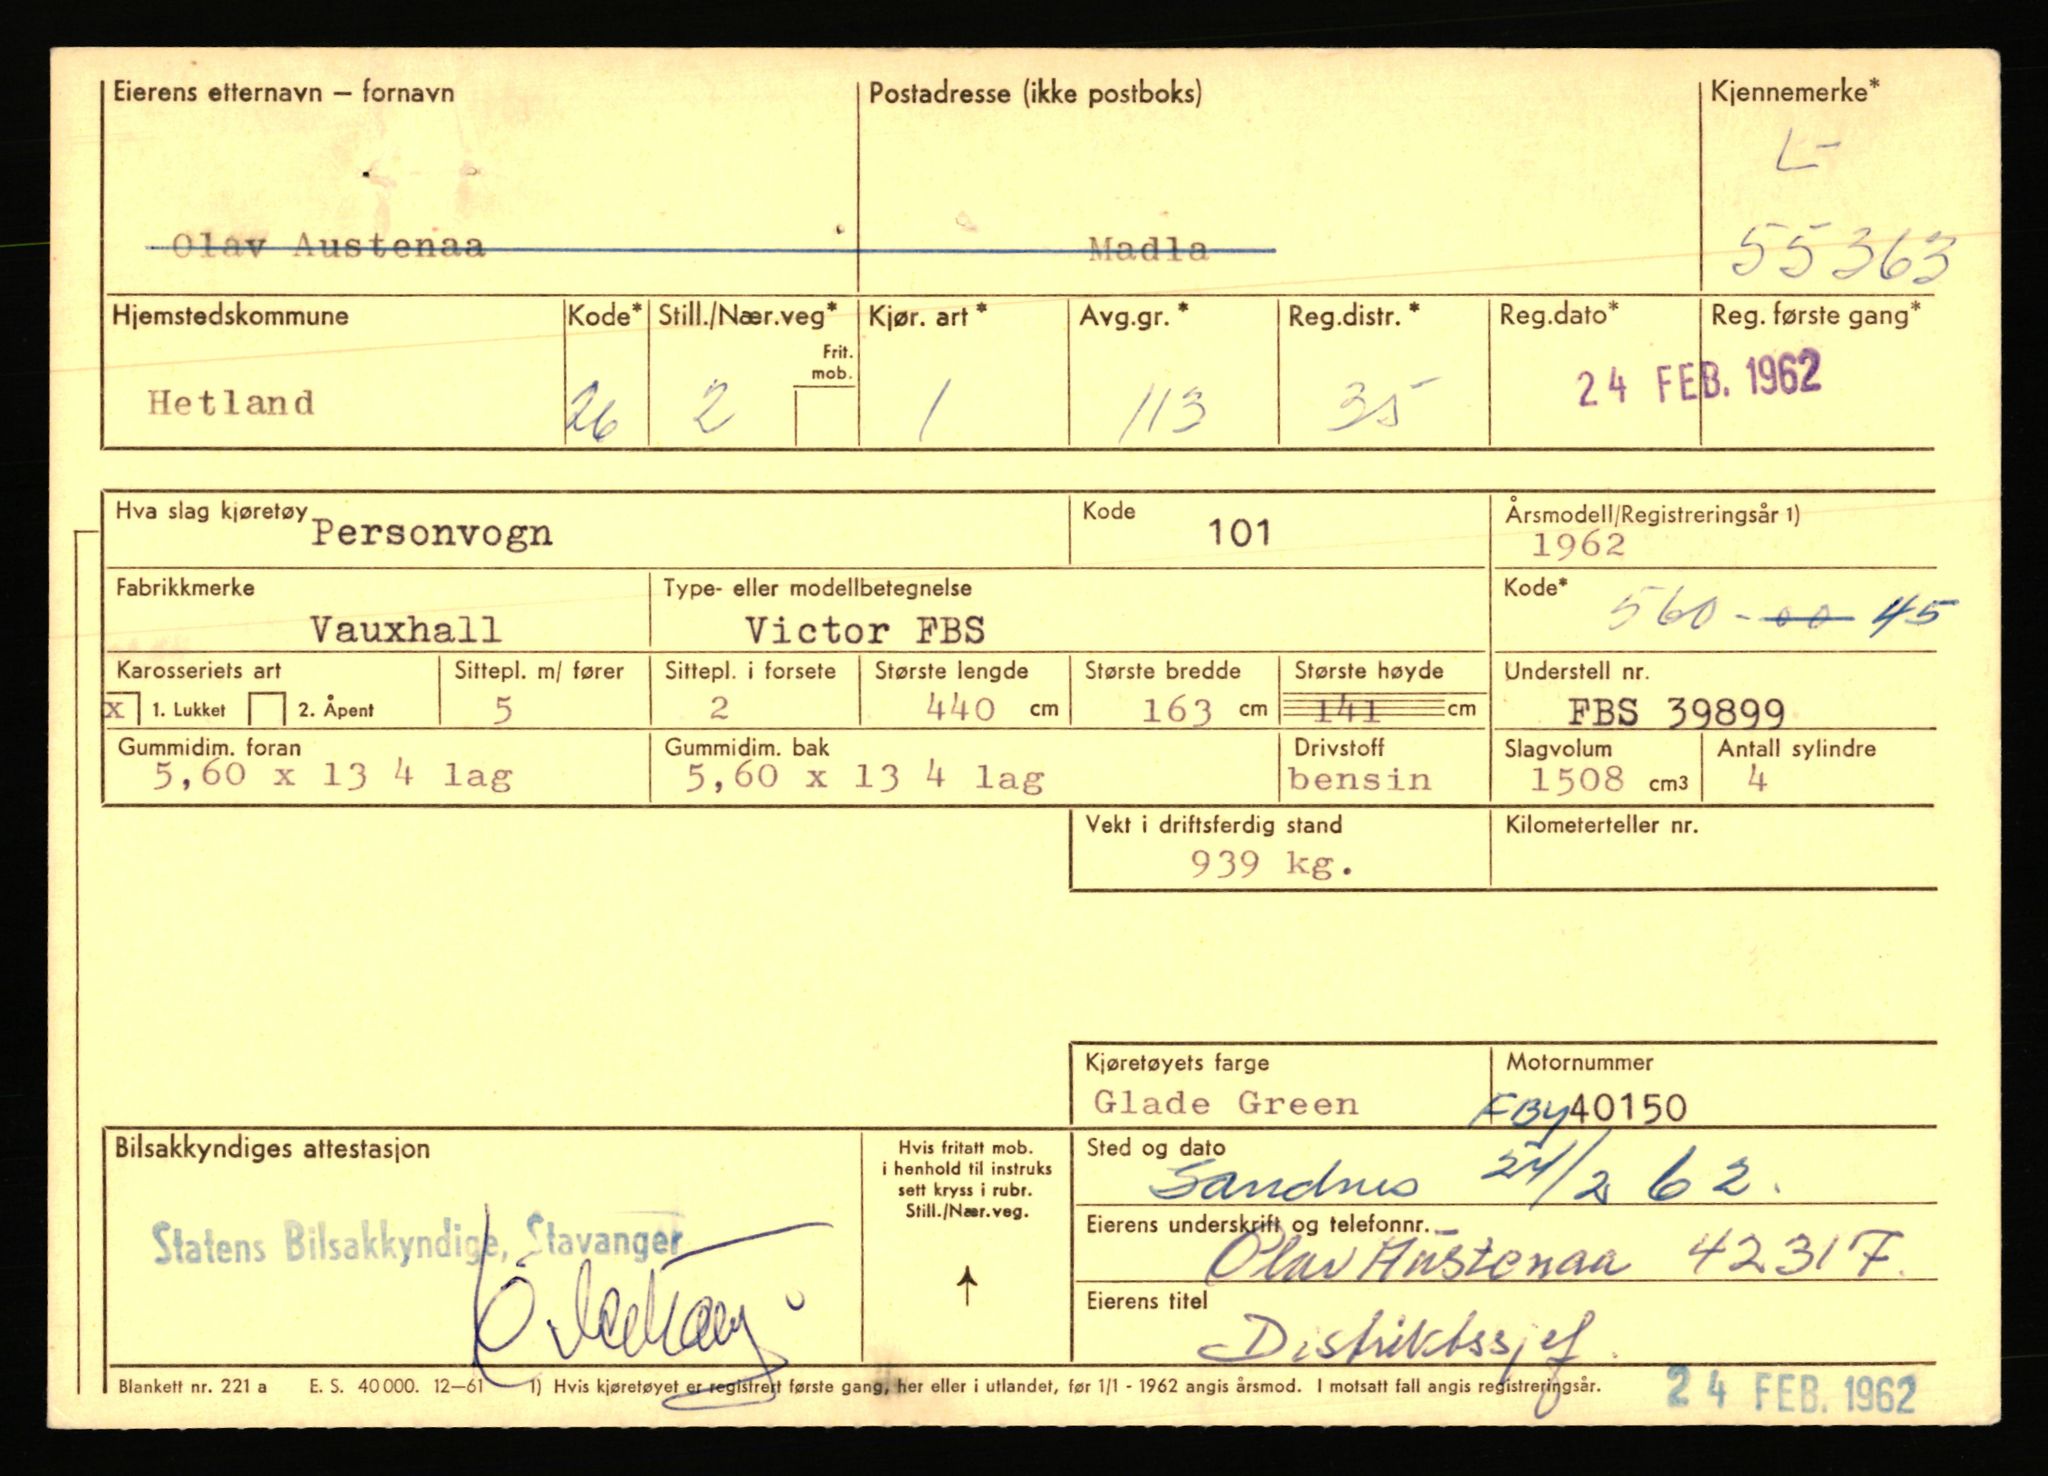 Eierens etternavn – fornavn Postadresse (ikke postboks) Kjennemerke*
L-
Olav Austenaa Madla 55363
Hjemstedskommune Kode* Still./Nær.veg* Kjør. art* Avg.gr.* Reg.distr.* Reg.dato* Reg. første gang*
Frit.
mob.
Hetland 26 2 1 113 35 24 FEB. 1962
Hva slag kjøretøy Personvogn Kode 101 Årsmodell/Registreringsår 1)
1962
Fabrikkmerke Type- eller modellbetegnelse Kode*
Vauxhall Victor FBS 560 - 00 45
Karosseriets art Sittepl. m/ fører Sittepl. i forsete Største lengde Største bredde Største høyde Understell nr.
x 1. Lukket 2. Åpent 5 2 440 cm 163 cm 141 cm FBS 39899
Gummidim. foran Gummidim. bak Drivstoff Slagvolum Antall sylindre
5,60 x 13 4 lag 5,60 x 13 4 lag bensin 1508 cm3 4
Vekt i driftsferdig stand Kilometerteller nr.
939 kg.
Kjøretøyets farge Motornummer
Glade Green FBY 40150
Bilsakkyndiges attestasjon Hvis fritatt mob. Sted og dato
i henhold til instruks
sett kryss i rubr.
Still./Nær.veg.
Sandnes 24/2 62.
Statens Bilsakkyndige, Stavanger
Eierens underskrift og telefonnr.
Olav Austenaa 42317.
Eierens titel
Distriktssjef.
Blankett nr. 221 a E. S. 40 000. 12–61 1) Hvis kjøretøyet er registrert første gang, her eller i utlandet, før 1/1 - 1962 angis årsmod. I motsatt fall angis registreringsår. 24 FEB. 1962